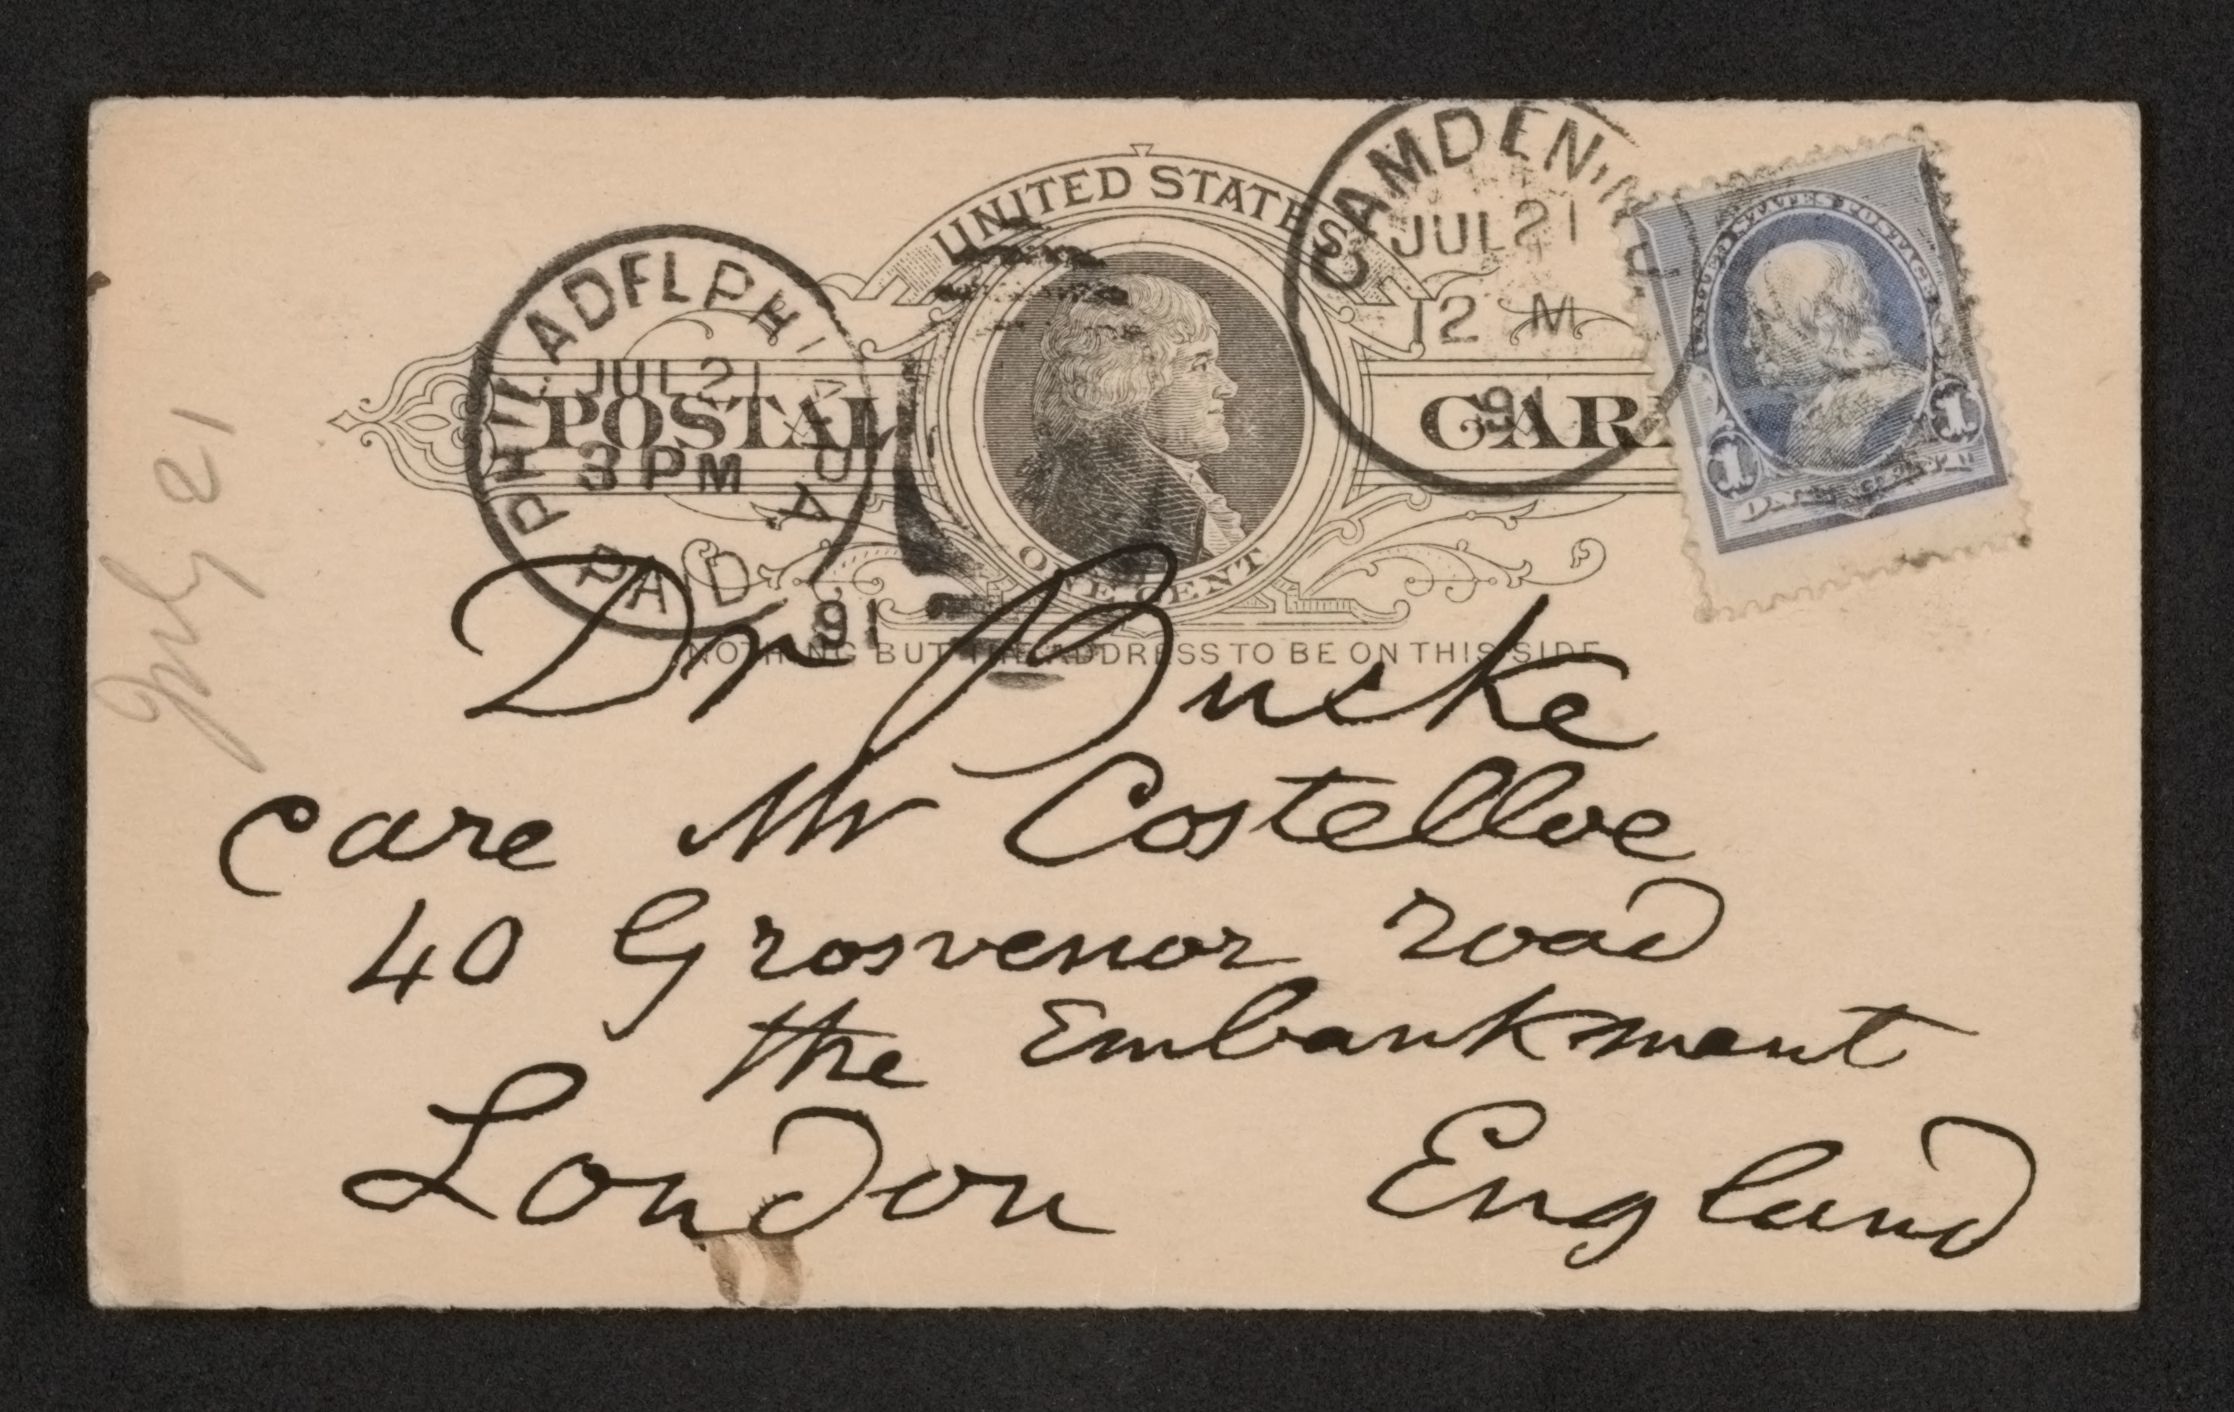 UNITED STATES
POSTAL CARD
ONE CENT
NOTHING BUT THE ADDRESS TO BE ON THIS SIDE.
PHILADELPHIA
JUL 21
3 PM
91
PAID
CAMDEN, N.J.
JUL 21
12 M
91
1 1
July 21
Dr Bucke
care Mr Costelloe
40 Grosvenor road
the Embankment
London England